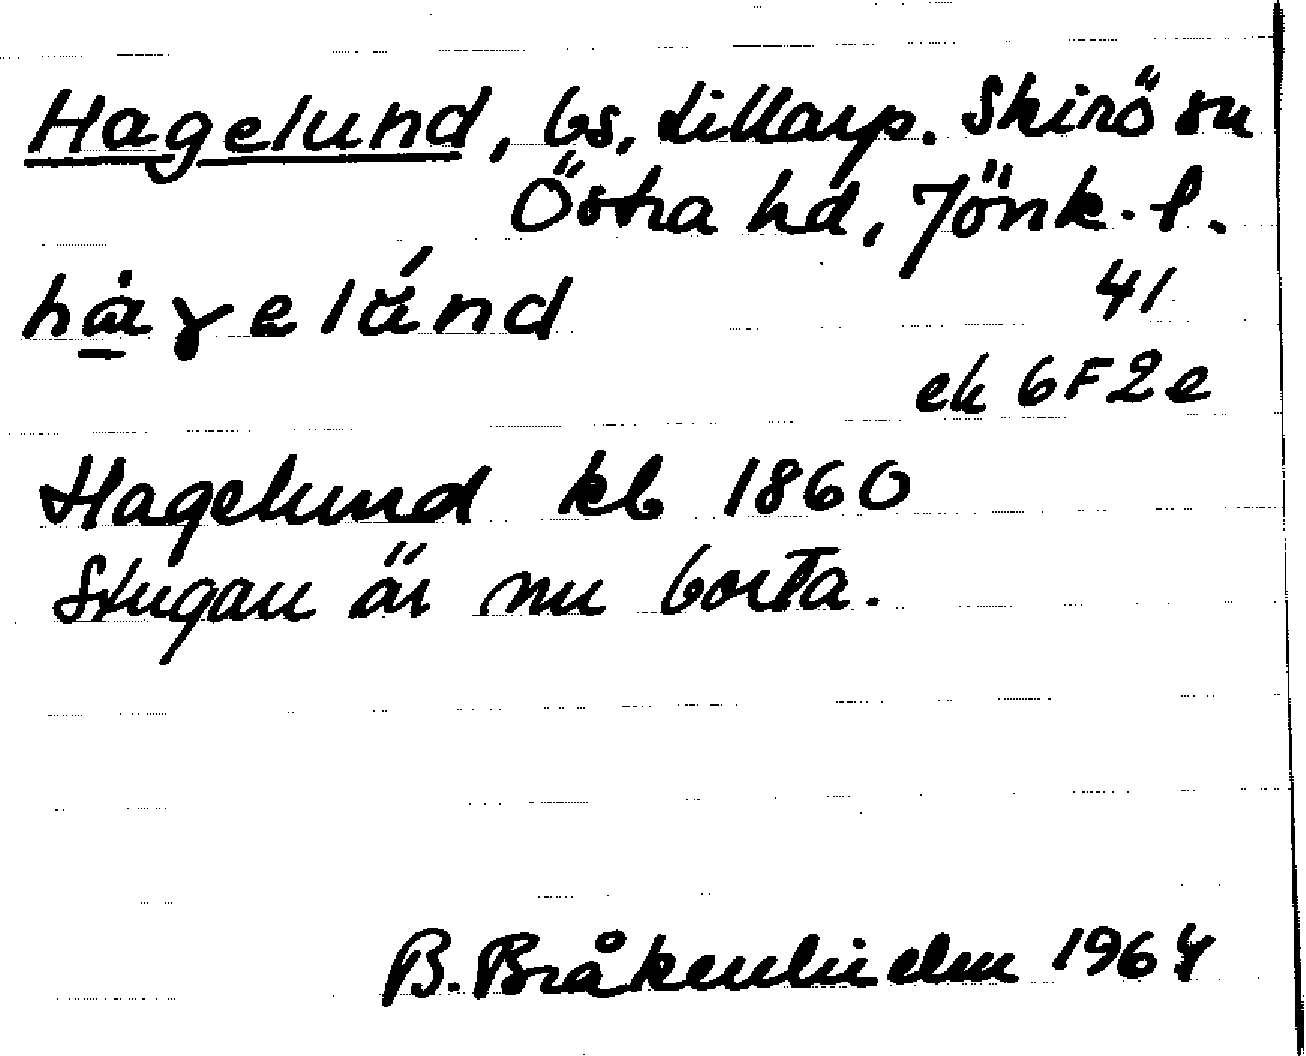 Hagelund, bs, Lillarp. Skirö sn
Östra hd, Jönk. l.
41
ek 6F2e
Hagelund kb 1860
Stugan är nu borta.
B. 1967